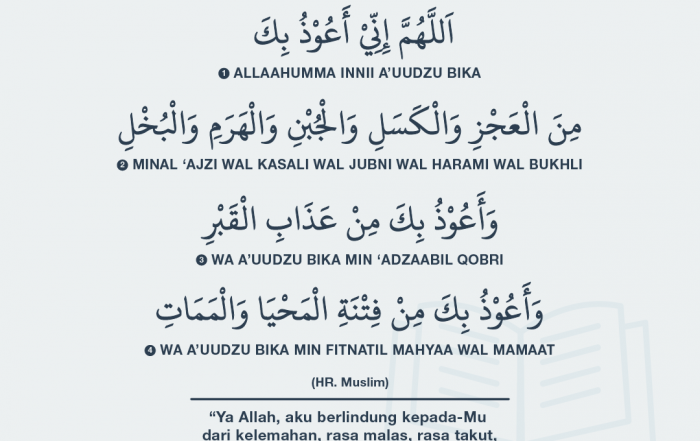 اَللَّهُمَّ إِنِّيْ أَعُوْذُ بِكَ
1 ALLAAHUMMA INNII A’UUDZU BIKA
مِنَ الْعَجْزِ وَالْكَسَلِ وَالْجُبْنِ وَالْهَرَمِ وَالْبُخْلِ
2 MINAL ‘AJZI WAL KASALI WAL JUBNI WAL HARAMI WAL BUKHLI
وَأَعُوْذُ بِكَ مِنْ عَذَابِ الْقَبْرِ
3 WA A’UUDZU BIKA MIN ‘ADZAABIL QOBRI
وَأَعُوْذُ بِكَ مِنْ فِتْنَةِ الْمَحْيَا وَالْمَمَاتِ
4 WA A’UUDZU BIKA MIN FITNATIL MAHYAA WAL MAMAAT
(HR. Muslim)
“Ya Allah, aku berlindung kepada-Mu
dari kelemahan, rasa malas, rasa takut,